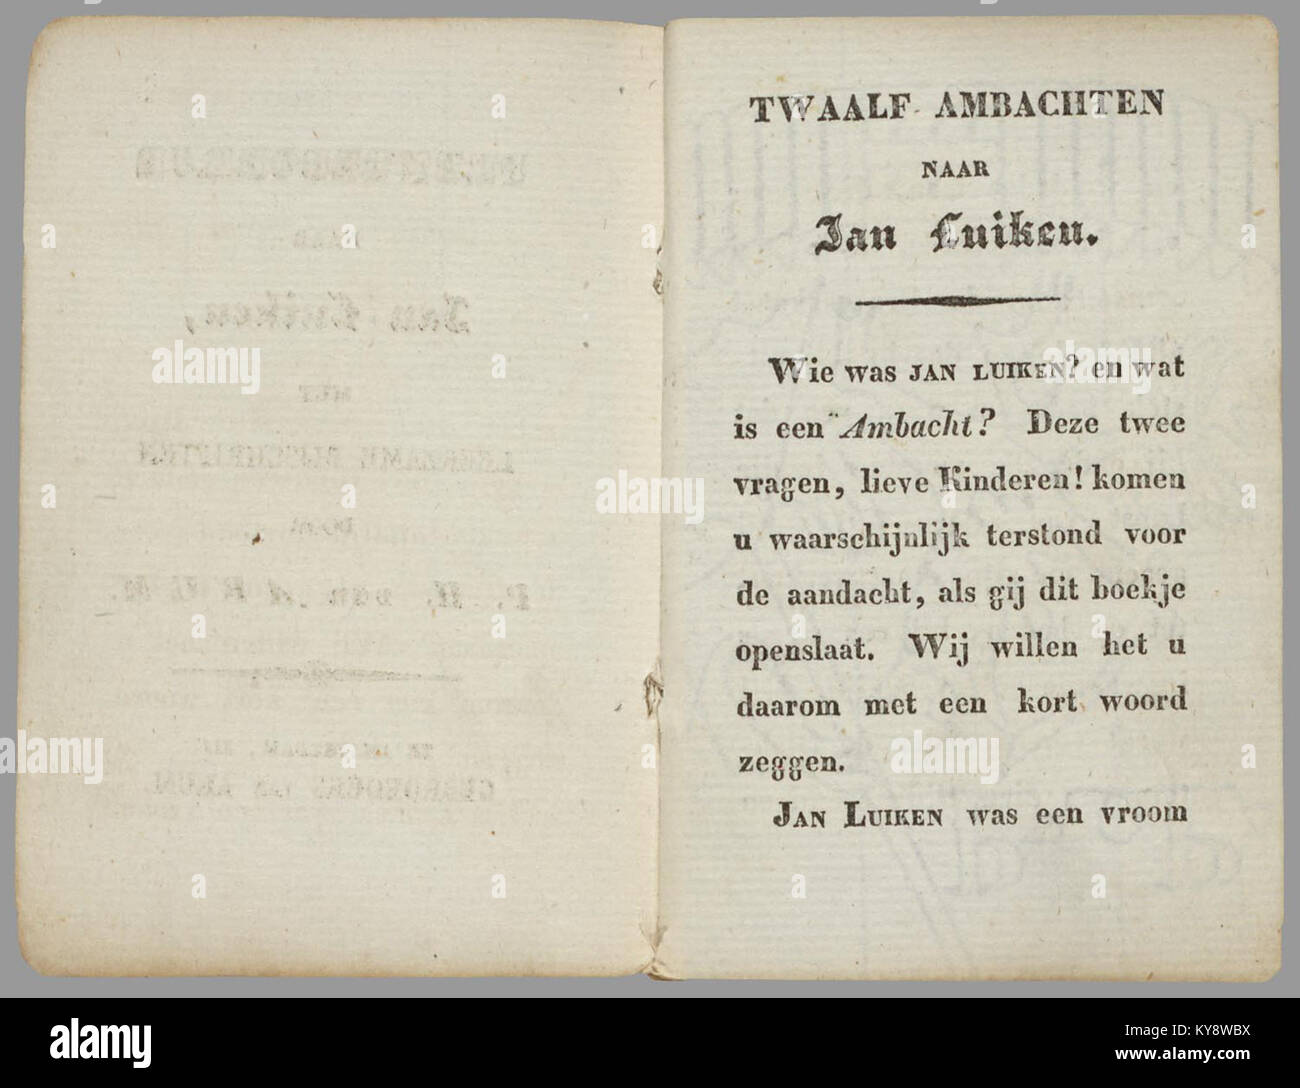 TWAALF AMBACHTEN
NAAR
Jan Luiken.
Wie was JAN LUIKEN? en wat
is een Ambacht? Deze twee
vragen, lieve Kinderen! komen
u waarschijnlijk terstond voor
de aandacht, als gij dit boekje
openslaat. Wij willen het u
daarom met een kort woord
zeggen.
JAN LUIKEN was een vroom
Jan Luiken,
MET
P. H. van ARUM.
GEBROEDERS VAN ARUM.
alamy
alamy
alamy
alamy
alamy
alamy
alamy
Image ID: KY8WBX
www.alamy.com